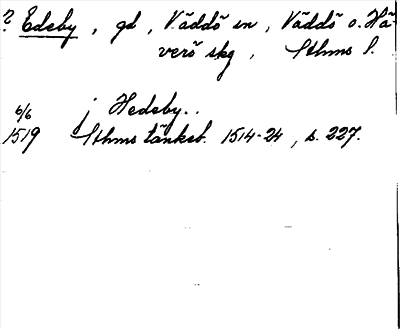 ? Edeby, gd, Väddö sn, Väddö o. Hä-
verö skg, Sthms l.
6/6 j Hedeby..
1519 Sthms tänkeb. 1514-24, s. 227.